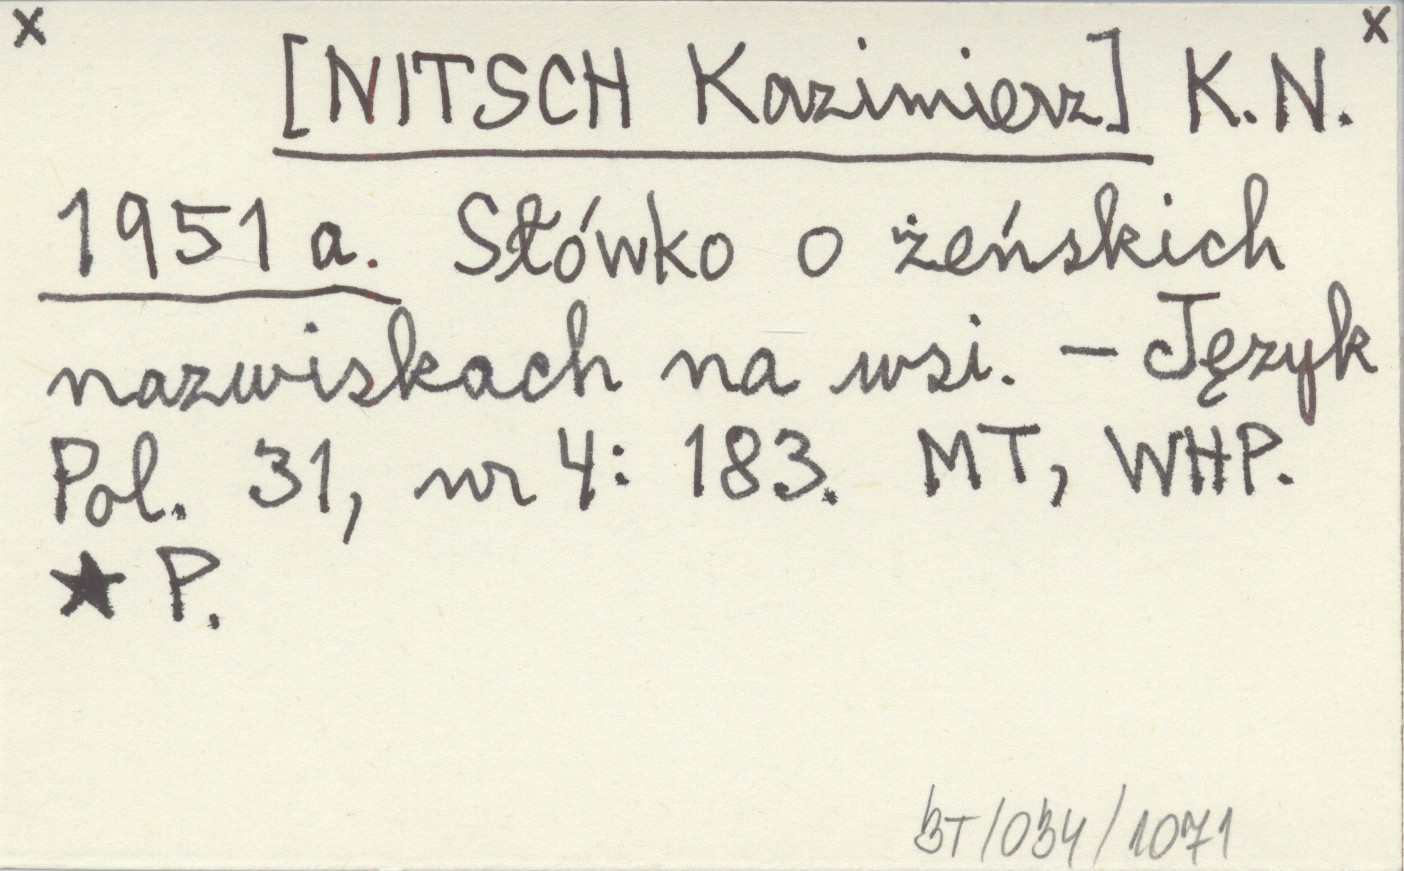 x x
[NITSCH Kazimierz] K.N.
1951 a. Słówko o żeńskich
nazwiskach na wsi. – Język
Pol. 31, nr 4: 183. MT, WHP.
★ P.
BT/034/1071